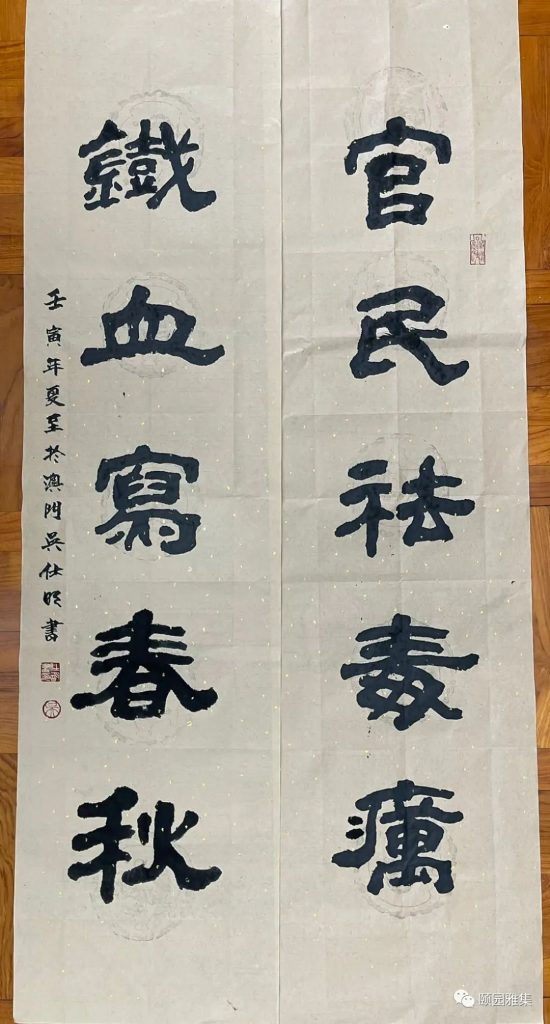 官民祛毒癘
鐵血寫春秋
壬寅年夏至於澳門吳仕明書
颐园雅集